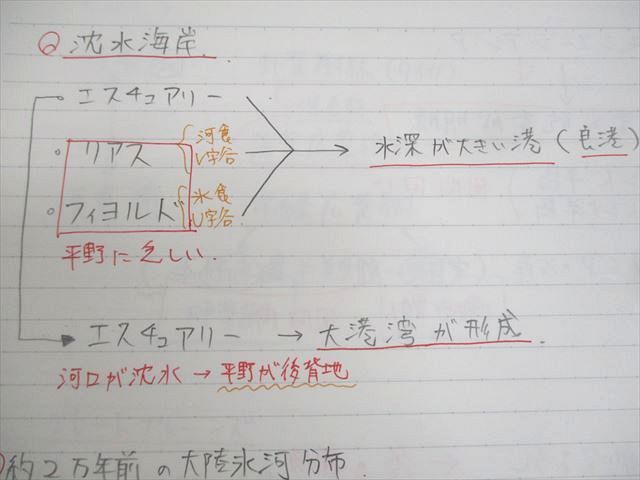 沈水海岸
エスチュアリー
リアス 河食 V字谷
水深が大きい港(良港)
フィヨルド 氷食 U字谷
平野に乏しい.
エスチュアリー → 大港湾が形成.
河口が沈水 → 平野が後背地
約2万年前の大陸氷河分布.